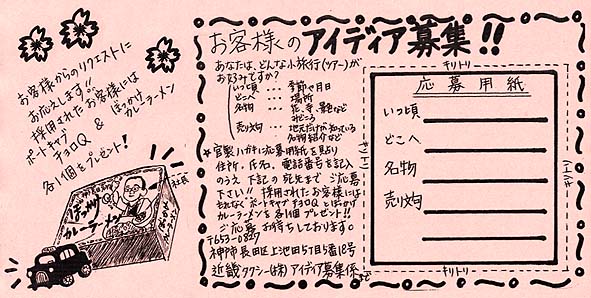 お客様からのリクエストに
お応えします!!
採用されたお客様には
ポートキャブ ぼっかけ
チョロQ & カレーラーメン
各1個をプレゼント!
社長
ぼっかけ
カレーラーメン
お客様のアイディア募集!!
あなたは、どんな小旅行(ツアー)が
お好みですか?
いつ頃 … 季節や月日
どこへ … 場所
名物 … 花、寺、景色など
みどころ
売り文句 … 地元だけが知っている
名物紹介など
★官製ハガキに応募用紙を貼り
住所、氏名、電話番号を記入
のうえ下記の宛先までご応募
下さい!! 採用されたお客様には
もれなくポートキャブチョロQとぼっかけ
カレーラーメンを各1個プレゼント!!
ご応募お待ちしております。
〒653-0827
神戸市長田区上池田5丁目5番18号
近畿タクシー(株)アイディア募集係まで
キリトリ
応募用紙
いつ頃
どこへ
名物
売り文句
キリトリ
キリトリ
キリトリ